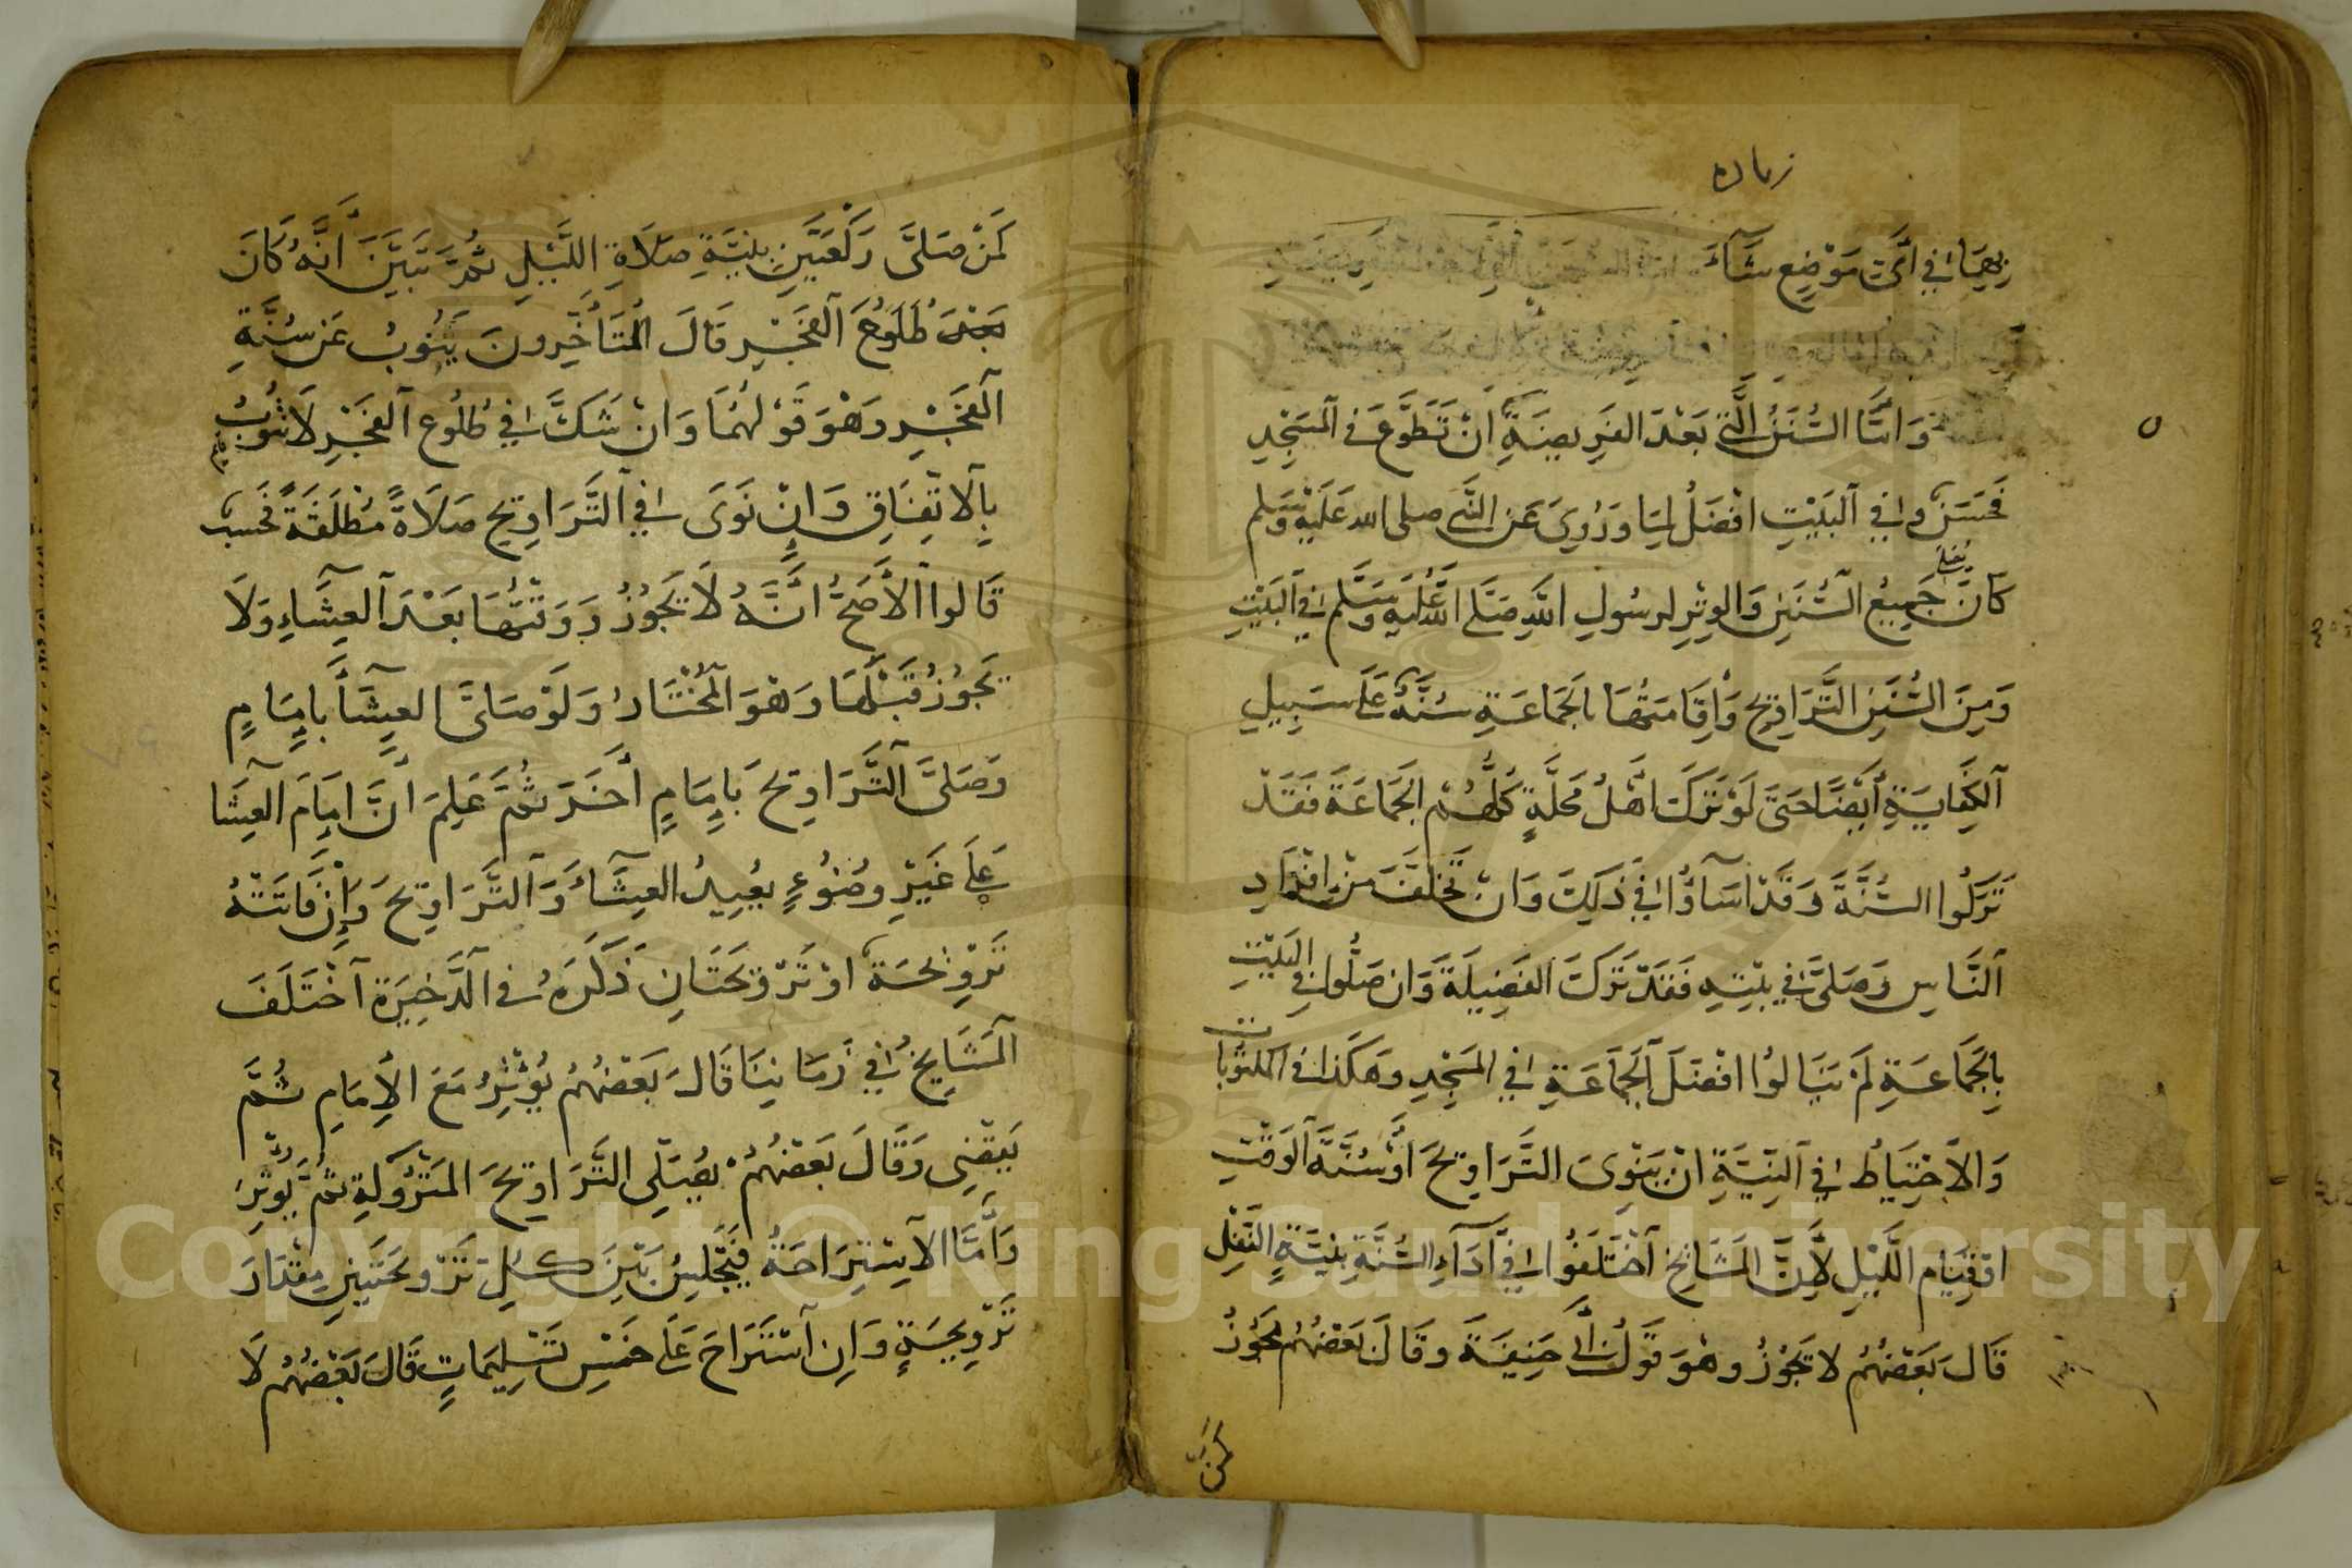 زياده
بهما في أي موضع شاء
وَأمَّا السُّنَنُ الَّتي بَعْدَ الفَرِيضَةِ انْ تَطَوَّعَ في المَسْجِدِ
فَحَسَنٌ وفي البَيْتِ افْضَلُ لِمَا وَرُوِيَ عَن النَّبي صلى الله عَلَيْهِ وَسَلم
كَانَ جَمِيعُ السُّنَنِ وَالوِتْرِ لِرسُولِ اللَّهِ صَلَّى اللَّه عَلَيهِ وَسَلَّم في البَيْتِ
وَمِنَ السُّنَنِ التَّرَاوِيح وَإقَامَتُهَا بالجَمَاعَةِ سُنَّةٌ عَلَى سَبِيلِ
الكِفَايَةِ أيْضًا حَتَّى لَوْ تَرَكَ اهْلُ مَحَلَّةٍ كُلُّهُمْ الجَمَاعَةَ فَقَدْ
تَرَكُوا السُّنَّةَ وَقَدْ اسَاؤُا في ذَلِكَ وَانْ تَخَلَّفَ مِنْ افْرَادِ
النَّاسِ وَصَلَّى في بَيْتِهِ فَقَدْ تَرَكَ الفَضِيلَةَ وَان صَلُّوا في البَيْتِ
بِالجَمَاعَةِ لَمْ يَنَالُوا افْضَلَ الجَمَاعَةِ في المَسْجِدِ وَهَكَذا في المكتُوبات
وَالاحْتِيَاطُ في النِّيَّةِ انْ يَنْوِىَ التَّرَاوِيحَ اوْ سُنَّةَ الوَقْتِ
اوْ قِيَام اللَّيْلِ لأنَّ المَشَايخَ اخْتَلَفُوا في أدَاءِ السُّنَّةِ بِنِيَّةِ النَّفْلِ
قَالَ بَعْضُهُمْ لا تَجُوزُ وهْوَ قَوْلُ أبي حَنِيفَةَ وقَالَ بَعْضُهُمْ تَجُوزُ
كَمَنْ
كَمَنْ صَلَّى رَكْعَتَيْنِ بِنِيَّةِ صَلَاةِ اللَّيْلِ ثُمَّ تَبَيَّنَ أنَّهُ كَانَ
بَعْدَ طُلُوعِ الفَجْرِ قَالَ المُتَأخِّرونَ يَنُوبُ عَن سُنَّةِ
الفَجْرِ وَهْوَ قَوْلُهُمَا وَانْ شَكَّ في طُلُوعِ الفَجْرِ لَا تنُوبُ
بِالاتِّفَاقِ وَانْ نَوَى في التَّرَاوِيحِ صَلَاةً مُطْلَقَةً فَحَسب
قَالوا الأصَحُّ انَّهُ لَا يَجُوزُ وَوَقْتُهَا بَعْدَ العِشَاءِ وَلَا
تَجُوزُ قَبْلَهَا وَهْوَ المُخْتَارُ وَلَوْ صَلَّى العِشَاءَ بإمَامٍ
وَصَلَّى التَّرَاوِيحَ بَإمَامٍ أخَرَ ثُمَّ عَلِمَ انَّ امَامَ العِشَا
عَلَى غَيْرِ وضُوْءٍ يُعِيدُ العِشَاءَ وَالتَّرَاوِيحَ وَإنْ فَاتَتْهُ
تَرْوِيحَةٌ اوْ تَرْوِيحَتَانِ ذَكَرَهُ في الذَّخِيرَة اخْتَلَفَ
المَشَايخُ في زَمَانِنَا قَالَ بَعْضُهُمْ يُوْتِرُ مَعَ الإمَامِ ثُمَّ
يَقْضِى وَقَالَ بَعْضُهُمْ يُصَلِّي التَّرَاوِيحَ المَتْرُوكَةِ ثُمَّ يُوْتِرُ
وَأمَّا الاسْتِرَاحَةُ فَيَجْلِسُ بَيْنَ كُلِّ تَرْوِيحَتَيْنِ مِقْدَارَ
تَرْوِيحَةٍ وَانِ اسْتَرَاحَ عَلَى خَمْسِ تَسْلِيمَاتٍ قَالَ بَعْضُهُمْ لَا
Copyright © King Saud University
1957